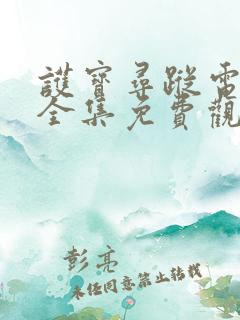 護寶尋蹤電
全集免費觀
彭亮
未经同意禁止转载